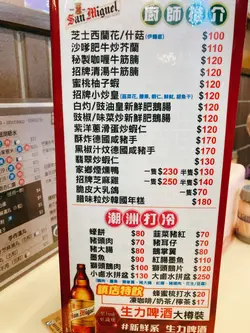 San Miguel
廚師推介
芝士西蘭花/什菇(伊麵底) $100
沙嗲肥牛炒芥蘭 $110
秘製咖喱牛筋腩 $120
招牌清湯牛筋腩 $120
蜜桃柚子蝦 $120
招牌小炒皇 $120
白灼/豉油皇新鮮肥鵝腸 $120
豉椒/味菜炒新鮮肥鵝腸 $120
紫洋蔥滑蛋炒蝦仁 $120
酥炸德國咸豬手 $170
黑椒汁炆德國咸豬手 $170
翡翠炒蝦仁 $130
家鄉煙燻鴨 一隻$230 半隻$130
招牌芝麻雞 一隻$250 半隻$140
脆皮大乳鴿 一隻$70
臘味粒炒韓國年糕 $180
潮洲打冷
蠔餅 $80
韮菜豬紅 $70
豬頭肉 $70
豬耳仔 $70
豬大腸 $70
鵝掌翼 $70
墨魚 $90
紅腸墨魚 $110
獅頭鵝肉 $100
獅頭鵝片 $200
小鹵水拼盆 $130
大鹵水拼盆 $250
蜂蜜桃打水 $20
凍咖啡/奶茶/檸茶 $17
生力啤酒 大樽裝
#新鮮系 生力啤酒